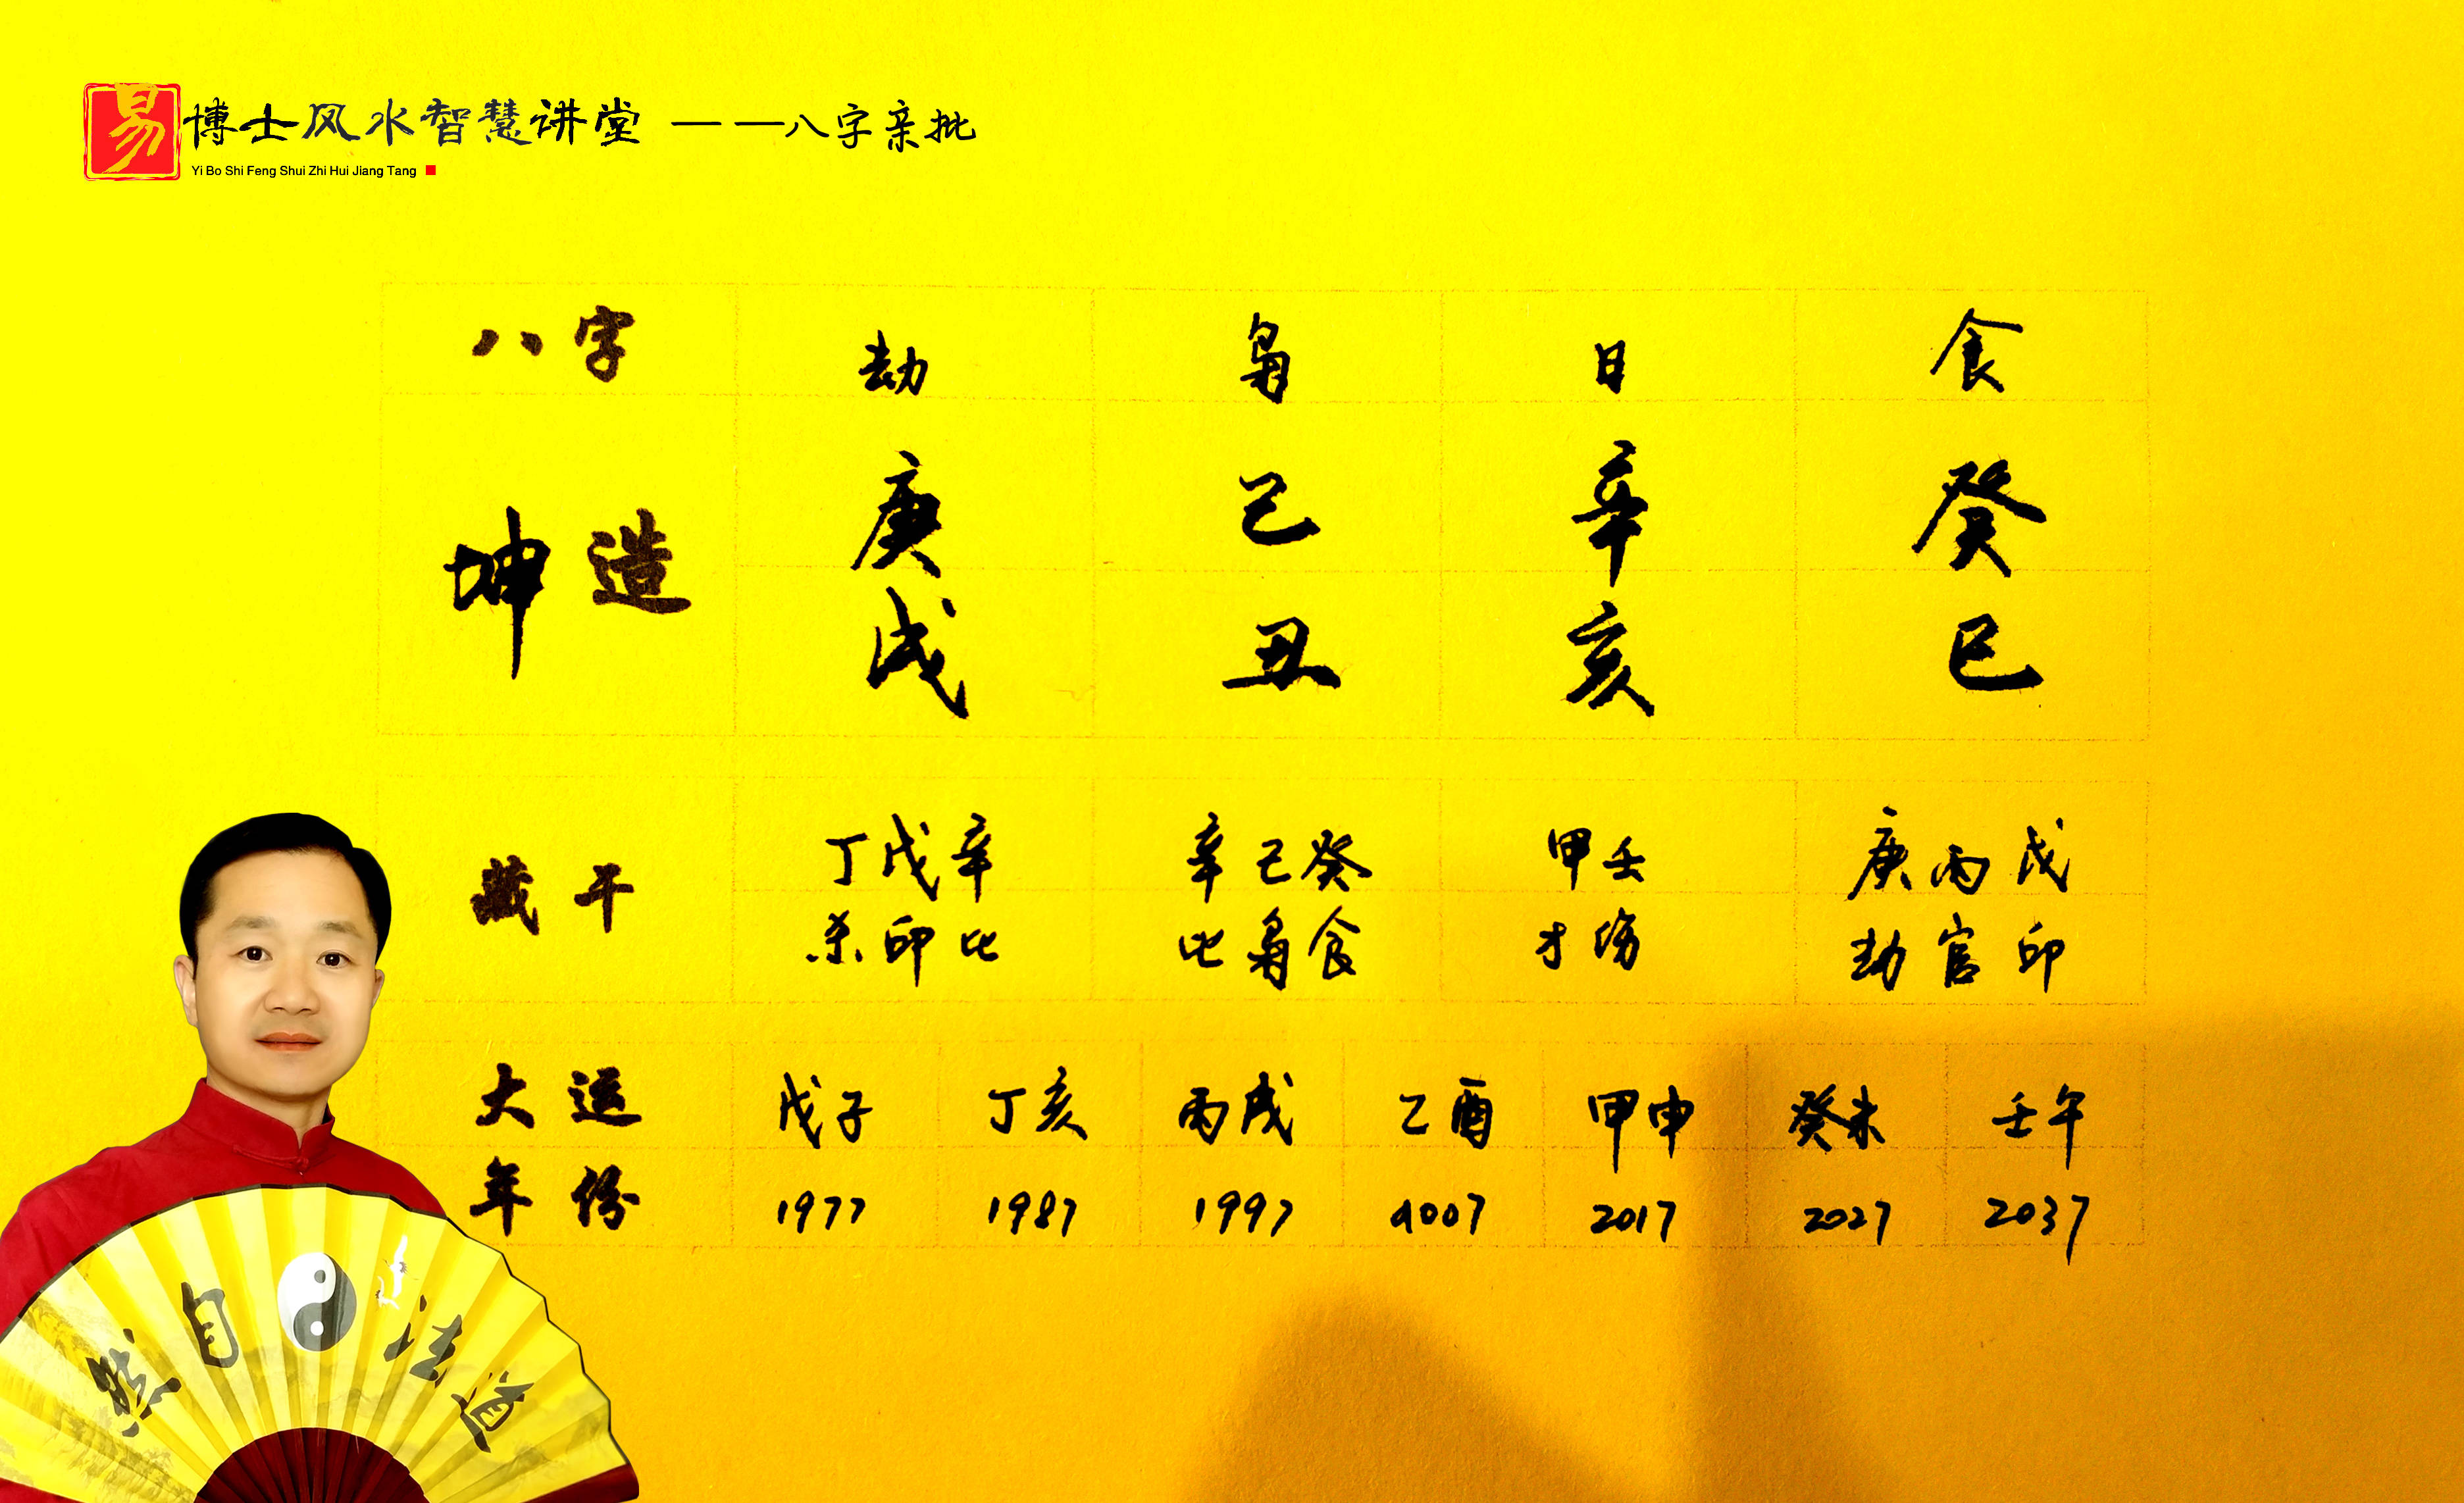 易博士风水智慧讲堂 ——八字亲批
Yi Bo Shi Feng Shui Zhi Hui Jiang Tang
八字 劫 枭 日 食
坤造 庚 己 辛 癸
戌 丑 亥 巳
藏干 丁戊辛 辛己癸 甲壬 庚丙戊
杀印比 比枭食 才伤 劫官印
大运 戊子 丁亥 丙戌 乙酉 甲申 癸未 壬午
年份 1977 1987 1997 2007 2017 2027 2037
道法自然